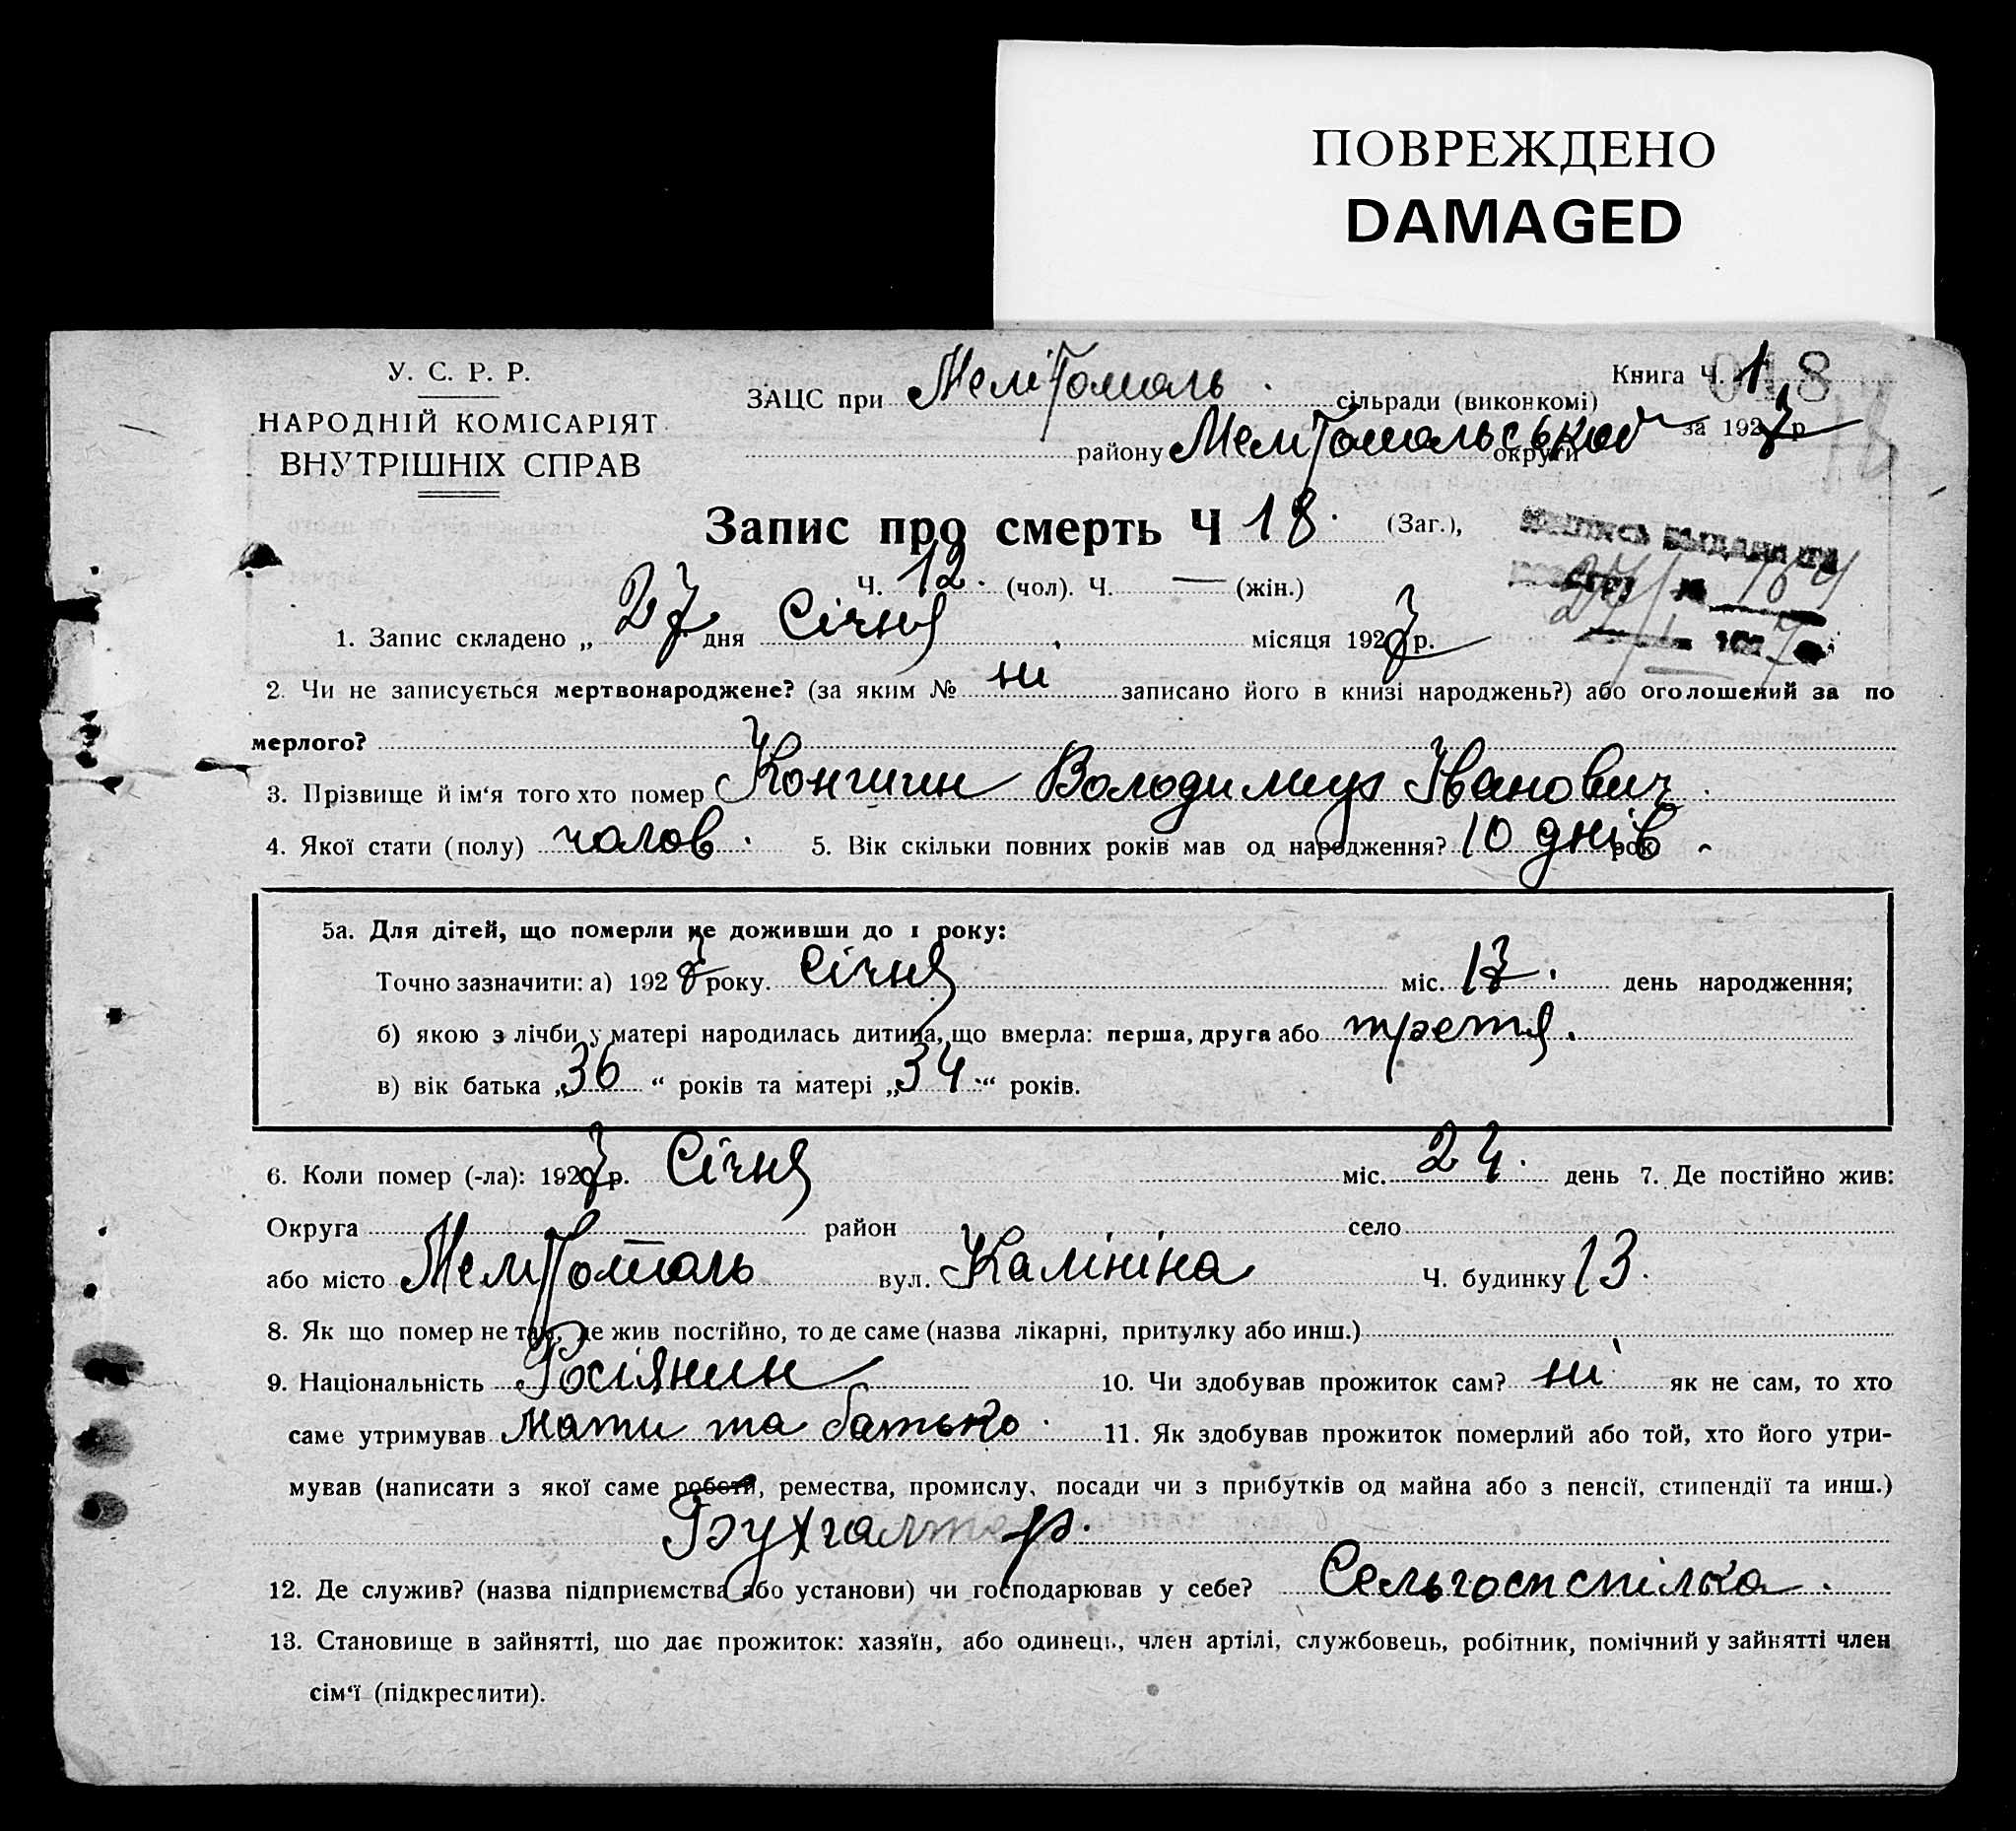 ПОВРЕЖДЕНО
DAMAGED
У. С. Р. Р.
НАРОДНІЙ КОМІСАРІЯТ
ВНУТРІШНІХ СПРАВ
ЗАЦС при Мелітополь сільради (виконкомі)
Книга Ч. 1 018
району Мелітопольської округи за 1927 р.
18
Запис про смерть Ч 18. (Заг.),
Ч. 12. (чол). Ч. — (жін.)
1. Запис складено „ 27 дня Січня місяця 1927 р.
2. Чи не записується мертвонароджене? (за яким № ні записано його в книзі народжень?) або оголошений за по
мерлого?
3. Прізвище й ім'я того хто помер Коншин Володимир Іванович
4. Якої стати (полу) чолов. 5. Вік скільки повних років мав од народження? 10 днів рок
5а. Для дітей, що померли не доживши до 1 року:
Точно зазначити: а) 1927 року. Січня міс. 17. день народження;
б) якою з лічби у матері народилась дитина, що вмерла: перша, друга або третя.
в) вік батька „36“ років та матері „34.“ років.
6. Коли помер (-ла): 1927 р. Січня міс. 27. день 7. Де постійно жив:
Округа район село
або місто Мелітополь вул. Калініна Ч. будинку 13.
8. Як що помер не там, де жив постійно, то де саме (назва лікарні, притулку або инш.)
9. Національність Росіянин 10. Чи здобував прожиток сам? ні як не сам, то хто
саме утримував Мати та батько. 11. Як здобував прожиток померлий або той, хто його утри-
мував (написати з якої саме роботи, ремества, промислу, посади чи з прибутків од майна або з пенсії, стипендії та инш.)
Бухгалтер.
12. Де служив? (назва підприємства або установи) чи господарював у себе? Сельгоспспілка.
13. Становище в зайнятті, що дає прожиток: хазяїн, або одинець, член артілі, службовець, робітник, помічний у зайнятті член
сім'ї (підкреслити).